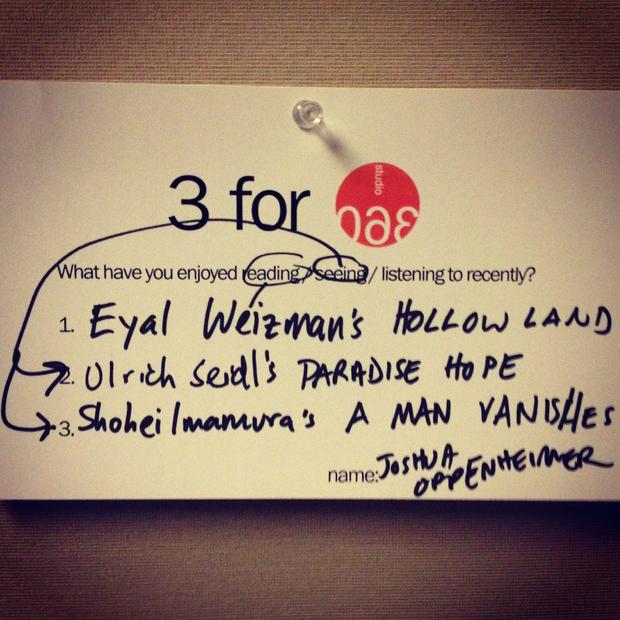 3 for
studio
360
What have you enjoyed reading / seeing / listening to recently?
1. Eyal Weizman's HOLLOW LAND
2. Ulrich Seidl's PARADISE HOPE
3. Shohei Imamura's A MAN VANISHES
name: JOSHUA
OPPENHEIMER